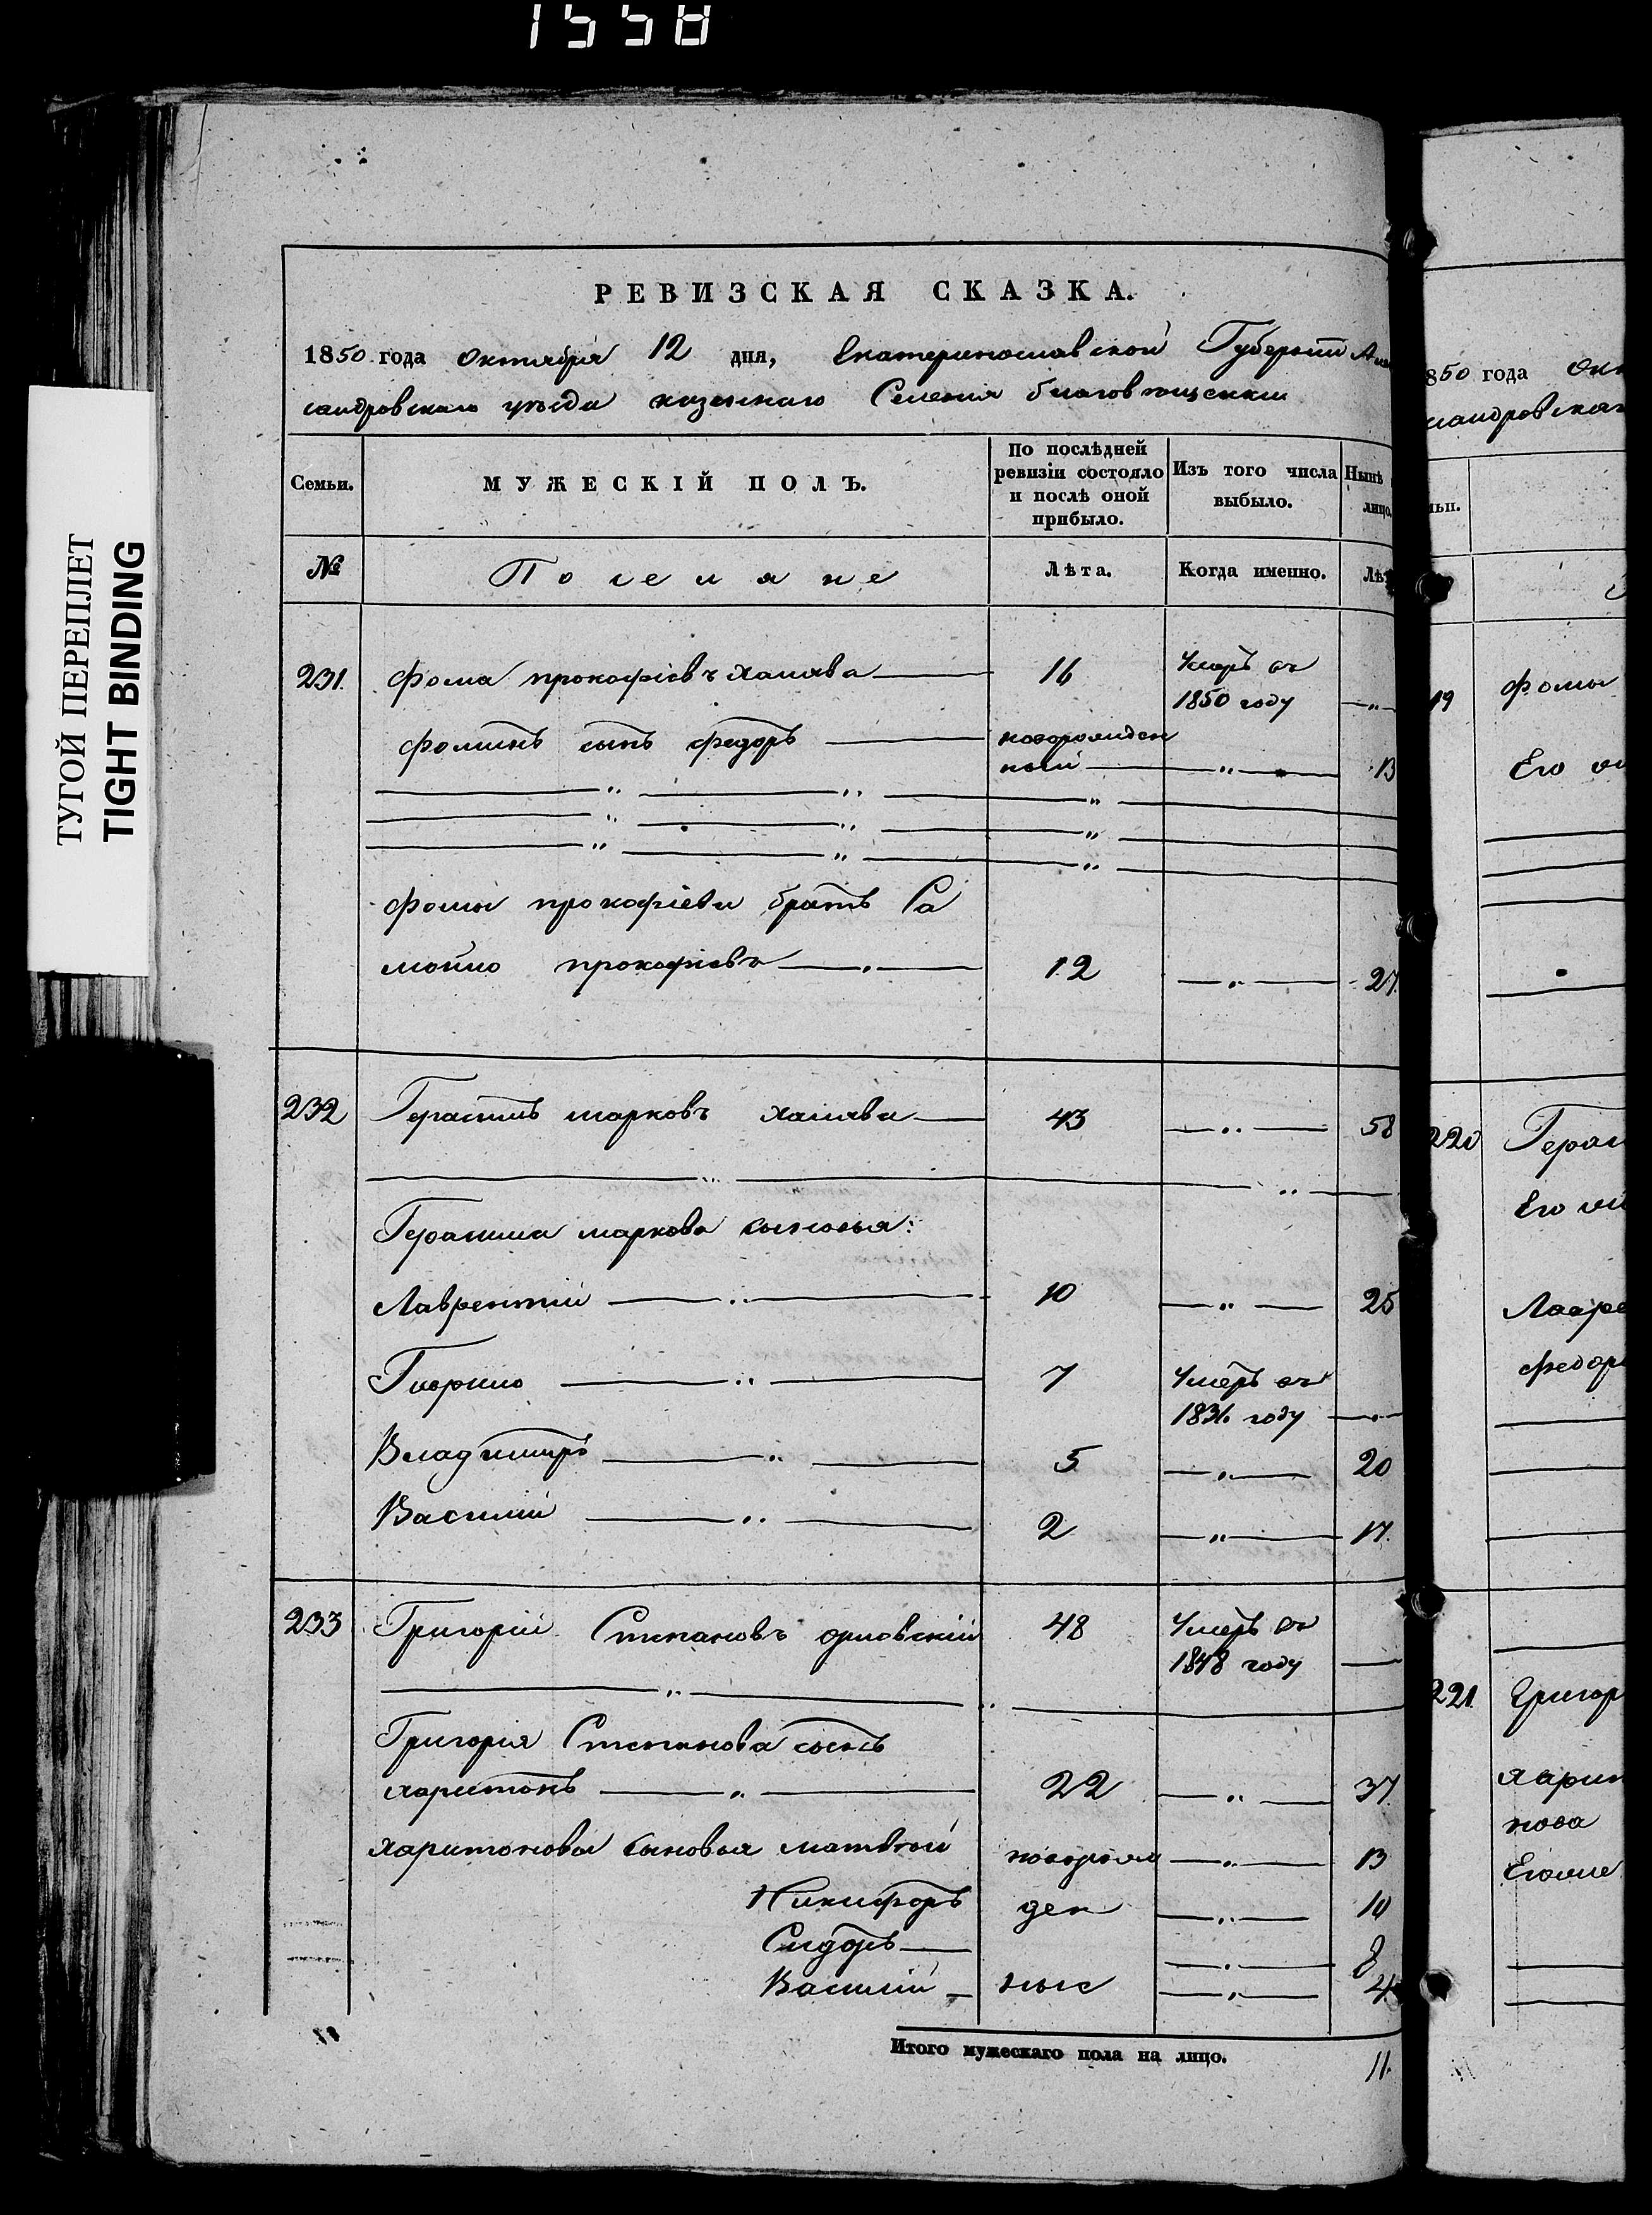 1558
ТУГОЙ ПЕРЕПЛЕТ
TIGHT BINDING
РЕВИЗСКАЯ СКАЗКА.
1850 года Октября 12 дня, Екатеринославской Губернии Алек
сандровскаго уѣзда казеннаго Селения благовѣщенки
Семьи.
МУЖЕСКІЙ ПОЛЪ.
По послѣдней ревизіи состояло и послѣ оной прибыло.
Изъ того числа выбыло.
Нынѣ лицо.
№
Поселяне
Лѣта.
Когда именно.
Лѣт
231. Фома прокофіевъ Халява 16 Умеръ въ
1850 году
Фоминъ сынъ Федоръ новорожден
ный 13
Фомы прокофіева братъ Са
мойло прокофіевъ 12 27.
232 Герасимъ марковъ халява 43 58
Герасима маркова сыновья:
Лаврентій 10 25
Гаврило 7 Умеръ въ
1836 году
Владимиръ 5 20
Василій 2 17.
233 Григорій Степановъ орловскій 48 Умеръ въ
1848 году
Григорія Степанова сынъ
харитонъ 22 37.
харитоновы сыновья матвѣй новорож 13
Никифоръ ден 10
Сидоръ 8
Василій ные 4
Итого мужескаго пола на лицо. 11.
850 года Окт
сандровскаг
ьи.
19 Фомы
Его
220 Герас
Его
Лавре
Федор
221 Григор
Харит
нова
Еговые